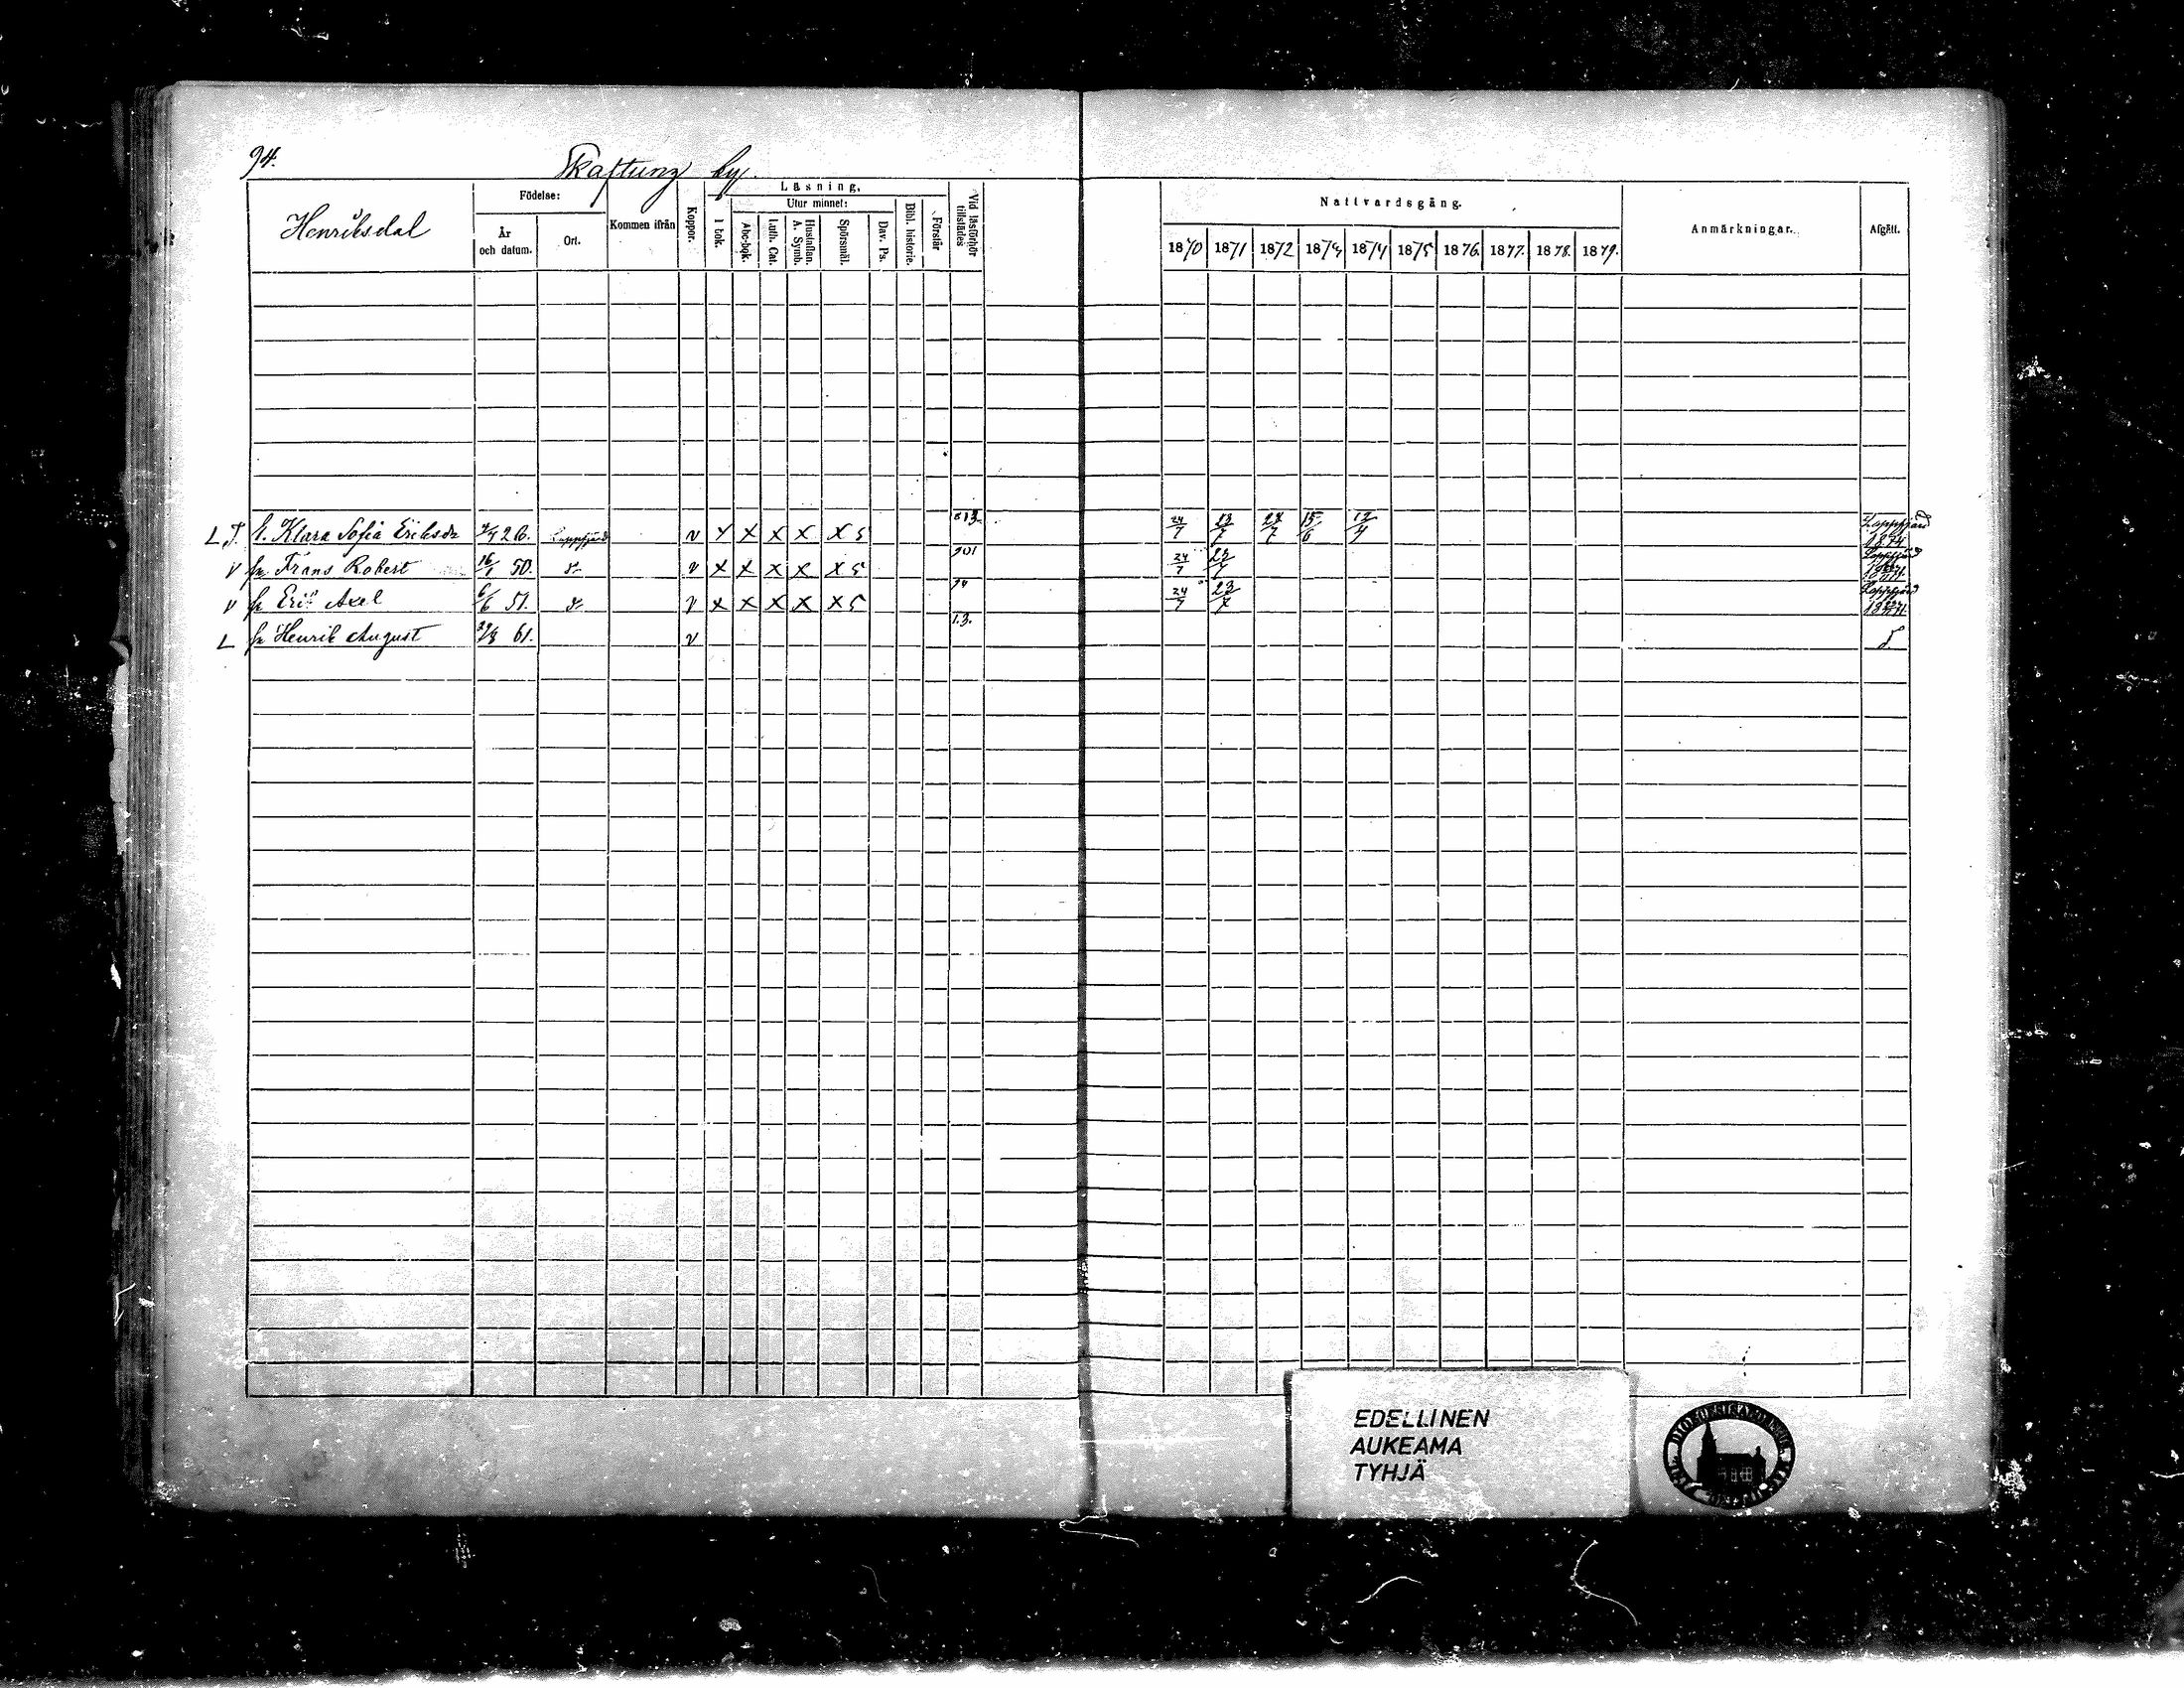 94. Skaftung by.
Henriksdal
Födelse:
År och datum.
Ort.
Kommen ifrån
Koppor.
Läsning.
I bok.
Utur minnet:
Abc-bok.
Luth. Cat.
Hustaflan. A. Symb.
Spörsmål.
Dav. Ps.
Bibl. historie.
Förstår
Vid läsförhör tillstädes
Nattvardsgång.
1870 1871 1872 1873 1874 1875 1876. 1877. 1878. 1879.
Anmärkningar.
Afgått.
L J. E. Klara Sofia Eriksdr 26. Lappfjärd v x x x x x 5 813. 24/7 23/7 15/6 12/4 Lappfjärd 1874
v Frans Robert 16/1 50. d:o v x x x x x 5 901 24/7 23/7 Lappfjärd
v Erik Axel 6/6 51. d:o v x x x x x 5 94 24/7 23/7 Lappfjärd
L Henrik August 61. v 1.3.
EDELLINEN
AUKEAMA
TYHJÄ